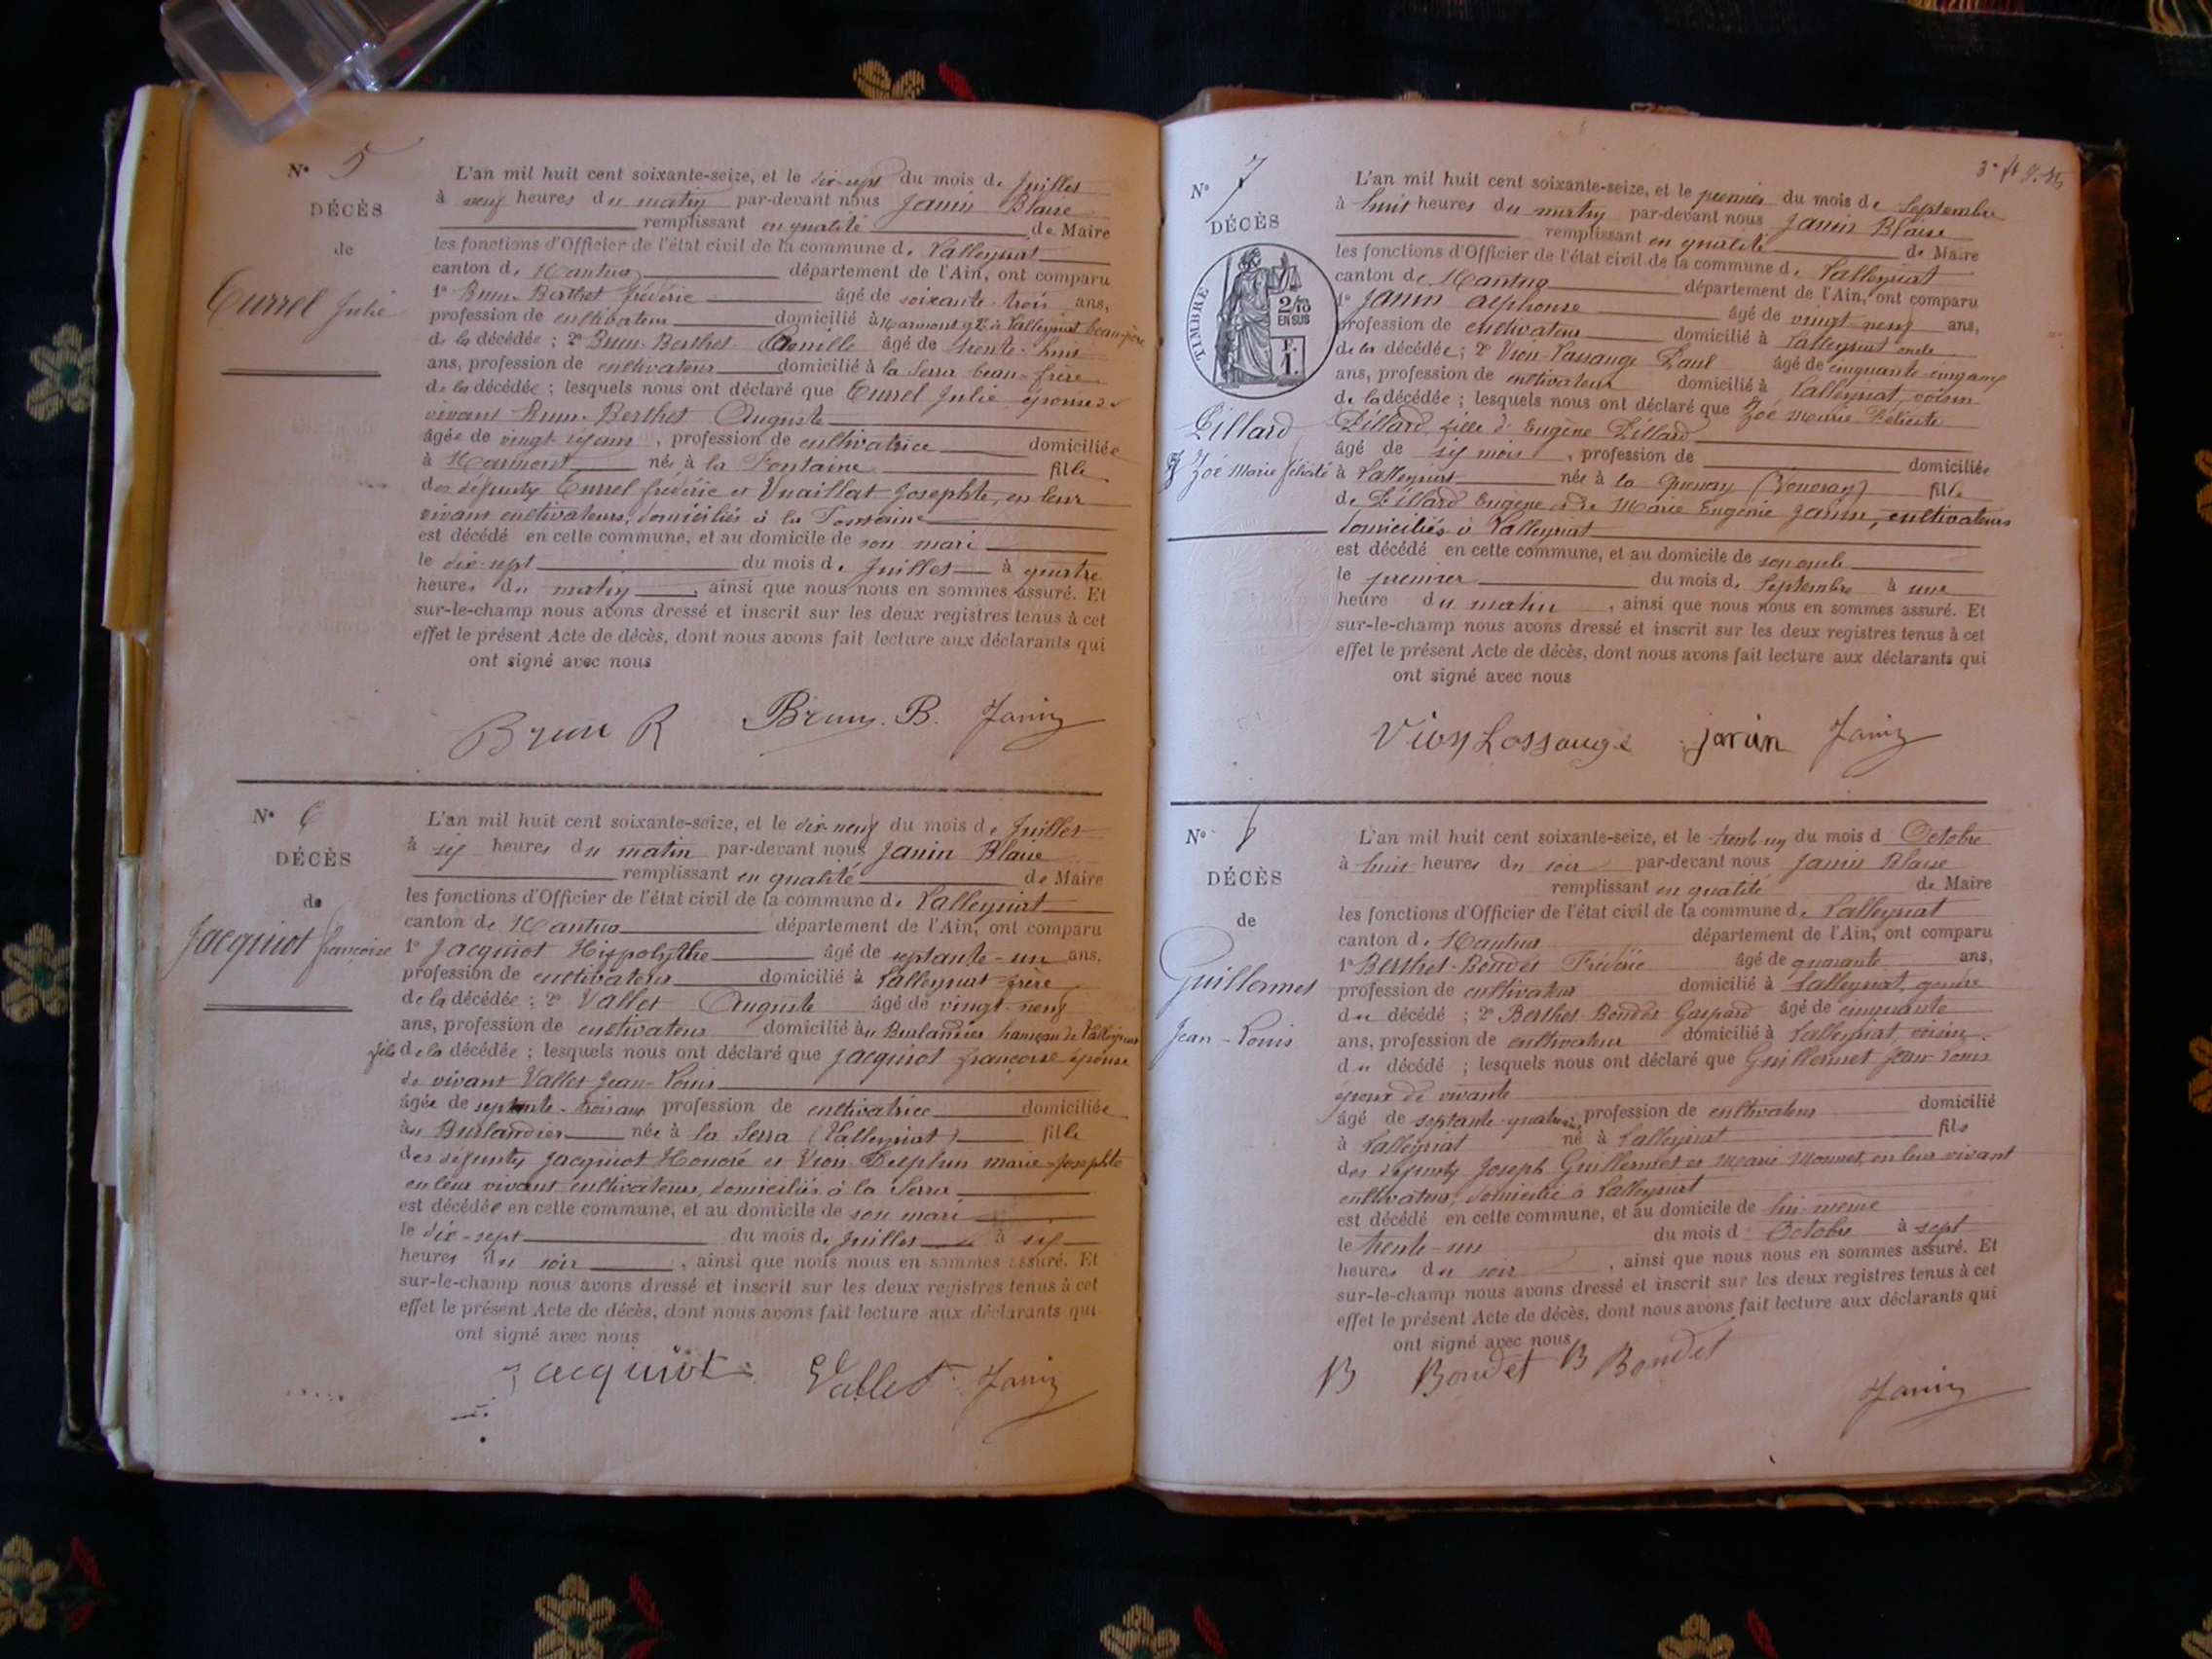 N° 5
DÉCÈS
de
Turrel Julie
L'an mil huit cent soixante-seize, et le dix-sept du mois de Juillet
à neuf heures du matin par-devant nous Janin Blaise
remplissant en qualité de Maire
les fonctions d'Officier de l'état civil de la commune de Lalleyriat
canton de Nantua département de l'Ain, ont comparu
1° Brun-Berthet frédéric âgé de soixante-trois ans,
profession de cultivateur domicilié à Marmont qr de Lalleyriat beau-père
de la décédée ; 2° Brun-Berthet Camille âgé de trente-huit
ans, profession de cultivateur domicilié à la Serra beau-frère
de la décédée ; lesquels nous ont déclaré que Turrel Julie épouse de
vivant Brun-Berthet Auguste
âgée de vingt-six ans, profession de cultivatrice domiciliée
à Marmont née à la Fontaine fille
des défunts Turrel frédéric et Vuaillat Josephte, en leur
vivant cultivateurs, domiciliés à la Fontaine
est décédé en cette commune, et au domicile de son mari
le dix-sept du mois de Juillet à quatre
heures du matin, ainsi que nous nous en sommes assuré. Et
sur-le-champ nous avons dressé et inscrit sur les deux registres tenus à cet
effet le présent Acte de décès, dont nous avons fait lecture aux déclarants qui
ont signé avec nous
Brun B Brun. B. Janin
N° 6
DÉCÈS
de
Jacquiot françoise
L'an mil huit cent soixante-seize, et le dix-neuf du mois de Juillet
à six heures du matin par-devant nous Janin Blaise
remplissant en qualité de Maire
les fonctions d'Officier de l'état civil de la commune de Lalleyriat
canton de Nantua département de l'Ain, ont comparu
1° Jacquiot Hippolythe âgé de septante-un ans,
profession de cultivateur domicilié à Lalleyriat frère
de la décédée ; 2° Vallet Auguste âgé de vingt-neuf
ans, profession de cultivateur domicilié au Burlandier hameau de Lalleyriat
fils de la décédée ; lesquels nous ont déclaré que Jacquiot françoise épouse
de vivant Vallet Jean-Louis
âgée de septante-trois ans profession de cultivatrice domiciliée
au Burlandier née à la Serra (Lalleyriat) fille
des défunts Jacquiot Honoré et Vion Delphin marie-Josephte
en leur vivant cultivateurs, domiciliés à la Serra
est décédée en cette commune, et au domicile de son mari
le dix-sept du mois de Juillet à six
heures du soir, ainsi que nous nous en sommes assuré. Et
sur-le-champ nous avons dressé et inscrit sur les deux registres tenus à cet
effet le présent Acte de décès, dont nous avons fait lecture aux déclarants qui
ont signé avec nous
Jacquiot Vallet Janin
N° 7
DÉCÈS
TIMBRE
2/10
EN SUS
F.
1.
Lillard
Zoé Marie félicité
L'an mil huit cent soixante-seize, et le premier du mois de Septembre
à huit heures du matin par-devant nous Janin Blaise
remplissant en qualité de Maire
les fonctions d'Officier de l'état civil de la commune de Lalleyriat
canton de Nantua département de l'Ain, ont comparu
1° Janin alphonse âgé de vingt-neuf ans,
profession de cultivateur domicilié à Lalleyriat oncle
de la décédée ; 2° Vion-Lassauge Paul âgé de cinquante-cinq ans
ans, profession de cultivateur domicilié à Lalleyriat, voisin
de la décédée ; lesquels nous ont déclaré que Zoé Marie Félicité
Lillard fille d'Eugène Lillard
âgé de six mois, profession de domiciliée
à Lalleyriat née à la fille
de Lillard Eugène et de Marie Eugénie Janin, cultivateurs
domiciliés à Lalleyriat
est décédé en cette commune, et au domicile de son oncle
le premier du mois de Septembre à une
heure du matin, ainsi que nous nous en sommes assuré. Et
sur-le-champ nous avons dressé et inscrit sur les deux registres tenus à cet
effet le présent Acte de décès, dont nous avons fait lecture aux déclarants qui
ont signé avec nous
Vion Lassauge janin Janin
N° 8
DÉCÈS
de
Guillermet
Jean-Louis
L'an mil huit cent soixante-seize, et le trente-un du mois d Octobre
à huit heures du soir par-devant nous Janin Blaise
remplissant en qualité de Maire
les fonctions d'Officier de l'état civil de la commune de Lalleyriat
canton de Nantua département de l'Ain, ont comparu
1° Berthet-Bondet Frédéric âgé de quarante ans,
profession de cultivateur domicilié à Lalleyriat, gendre
du décédé ; 2° Berthet-Bondet Gaspard âgé de cinquante
ans, profession de cultivateur domicilié à Lalleyriat, voisin
du décédé ; lesquels nous ont déclaré que Guillermet Jean-Louis
époux de vivante
âgé de septante-quatre, profession de cultivateur domicilié
à Lalleyriat né à Lalleyriat fils
des défunts Joseph Guillermet et Marie Monnet, en leur vivant
cultivateurs, domicilié à Lalleyriat
est décédé en cette commune, et au domicile de lui-même
le trente-un du mois d Octobre à sept
heures du soir, ainsi que nous nous en sommes assuré. Et
sur-le-champ nous avons dressé et inscrit sur les deux registres tenus à cet
effet le présent Acte de décès, dont nous avons fait lecture aux déclarants qui
ont signé avec nous
B Bondet B Bondet
Janin